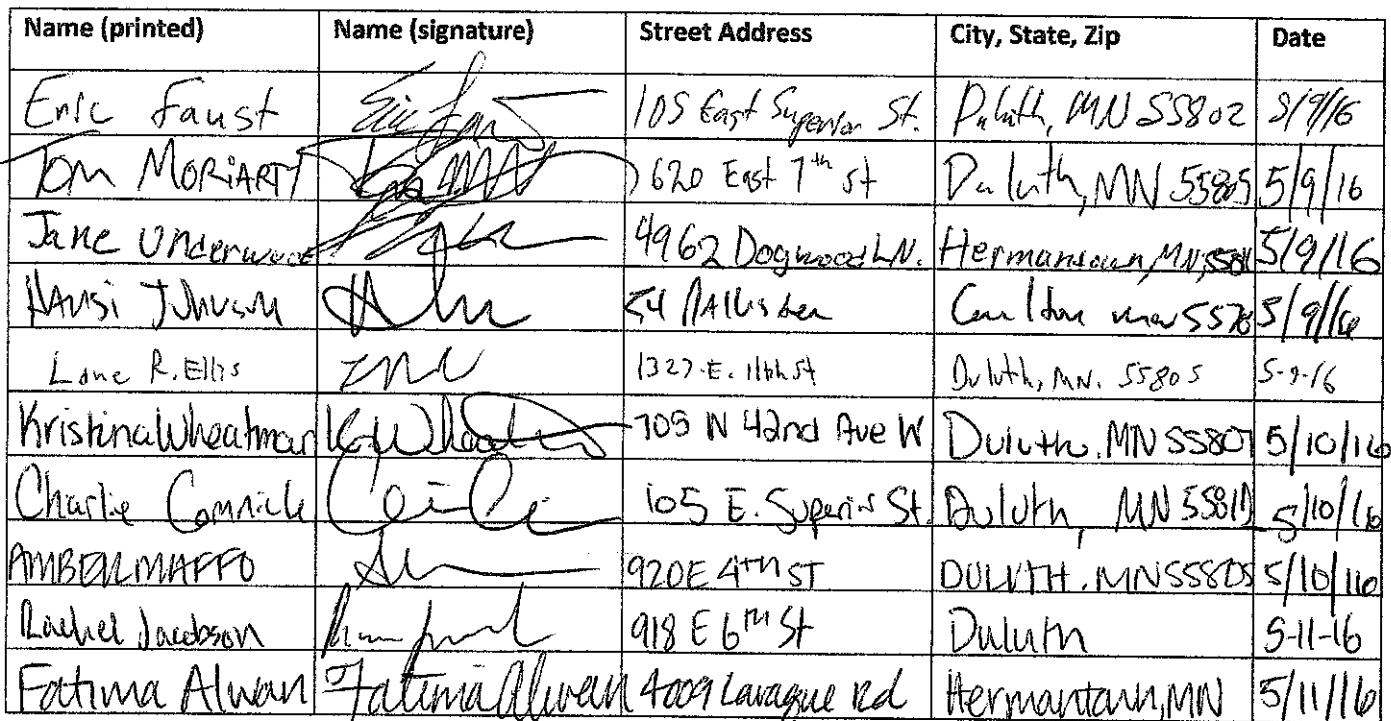 Name (printed) Name (signature) Street Address City, State, Zip Date
Eric Faust 105 East Superior St. Duluth, MN 55802 5/9/16
Tom MORIARTY 620 East 7th St Duluth, MN 55805 5/9/16
Jane Underwood 4962 Dogwood LN. Hermantown, MN, 5/9/16
HANSI Johnson 54 Carlton 5/9/16
Lane R. Ellis 1327 E. 11th St Duluth, MN. 55805 5-9-16
Kristina Wheatman K Wheat 705 N 42nd Ave W Duluth, MN 55807 5/10/16
Charlie 105 E. Superior St. Duluth, MN 5/10/16
AMBER MAFFO 920 E 4TH ST DULUTH, MN 55805 5/10/16
Rachel Jacobson 918 E 6TH St Duluth 5-11-16
Fatima Alwan Fatima Alwan 4009 Lavaque Rd Hermantown, MN 5/11/16